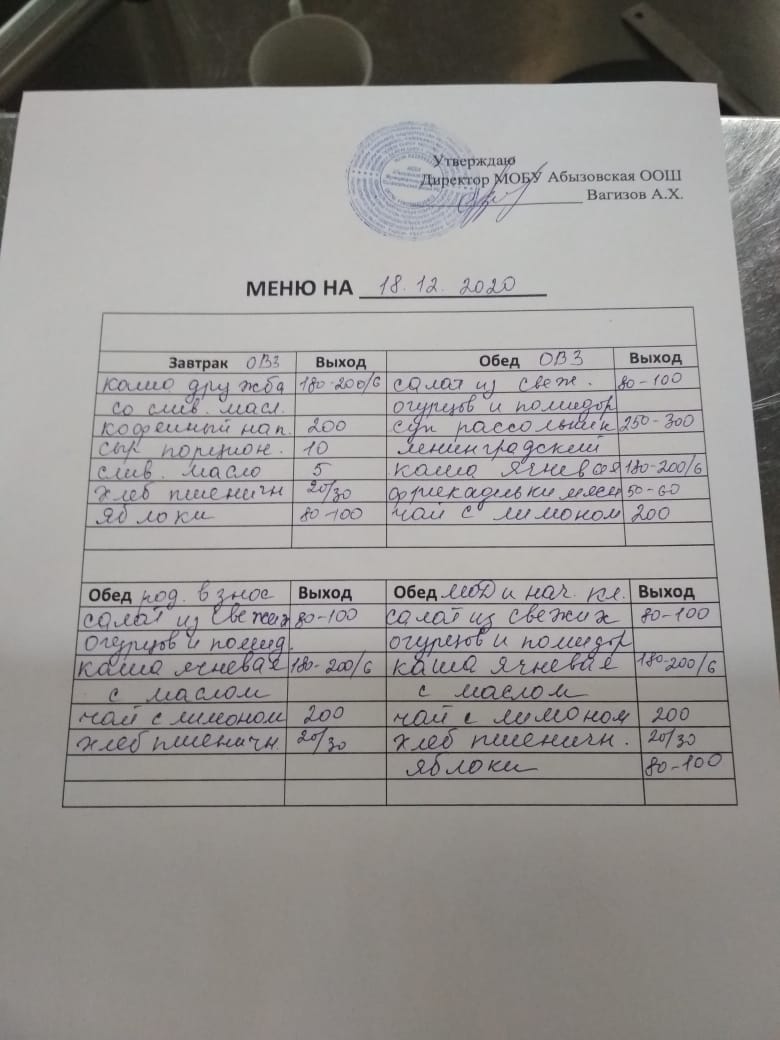 Утверждаю
Директор МОБУ Абызовская ООШ
Вагизов А.Х.
МЕНЮ НА 18.12.2020
Завтрак ОВЗ Выход Обед ОВЗ Выход
каша дружба 180-200/6 салат из свеж. 80-100
со слив. масл. огурцов и помидор
кофейный нап. 200 суп рассольник 250-300
сыр порцион. 10 ленинградский
слив. масло 5 каша ячневая 180-200/6
хлеб пшеничн 20/30 фрикадельки мясн 50-60
яблоки 80-100 чай с лимоном 200
Обед род. взнос Выход Обед МОД и нач. кл. Выход
салат из свежих 80-100 салат из свежих 80-100
огурцов и помид. огурцов и помидор
каша ячневая 180-200/6 каша ячневая 180-200/6
с маслом с маслом
чай с лимоном 200 чай с лимоном 200
хлеб пшеничн. 20/30 хлеб пшеничн. 20/30
яблоки 80-100